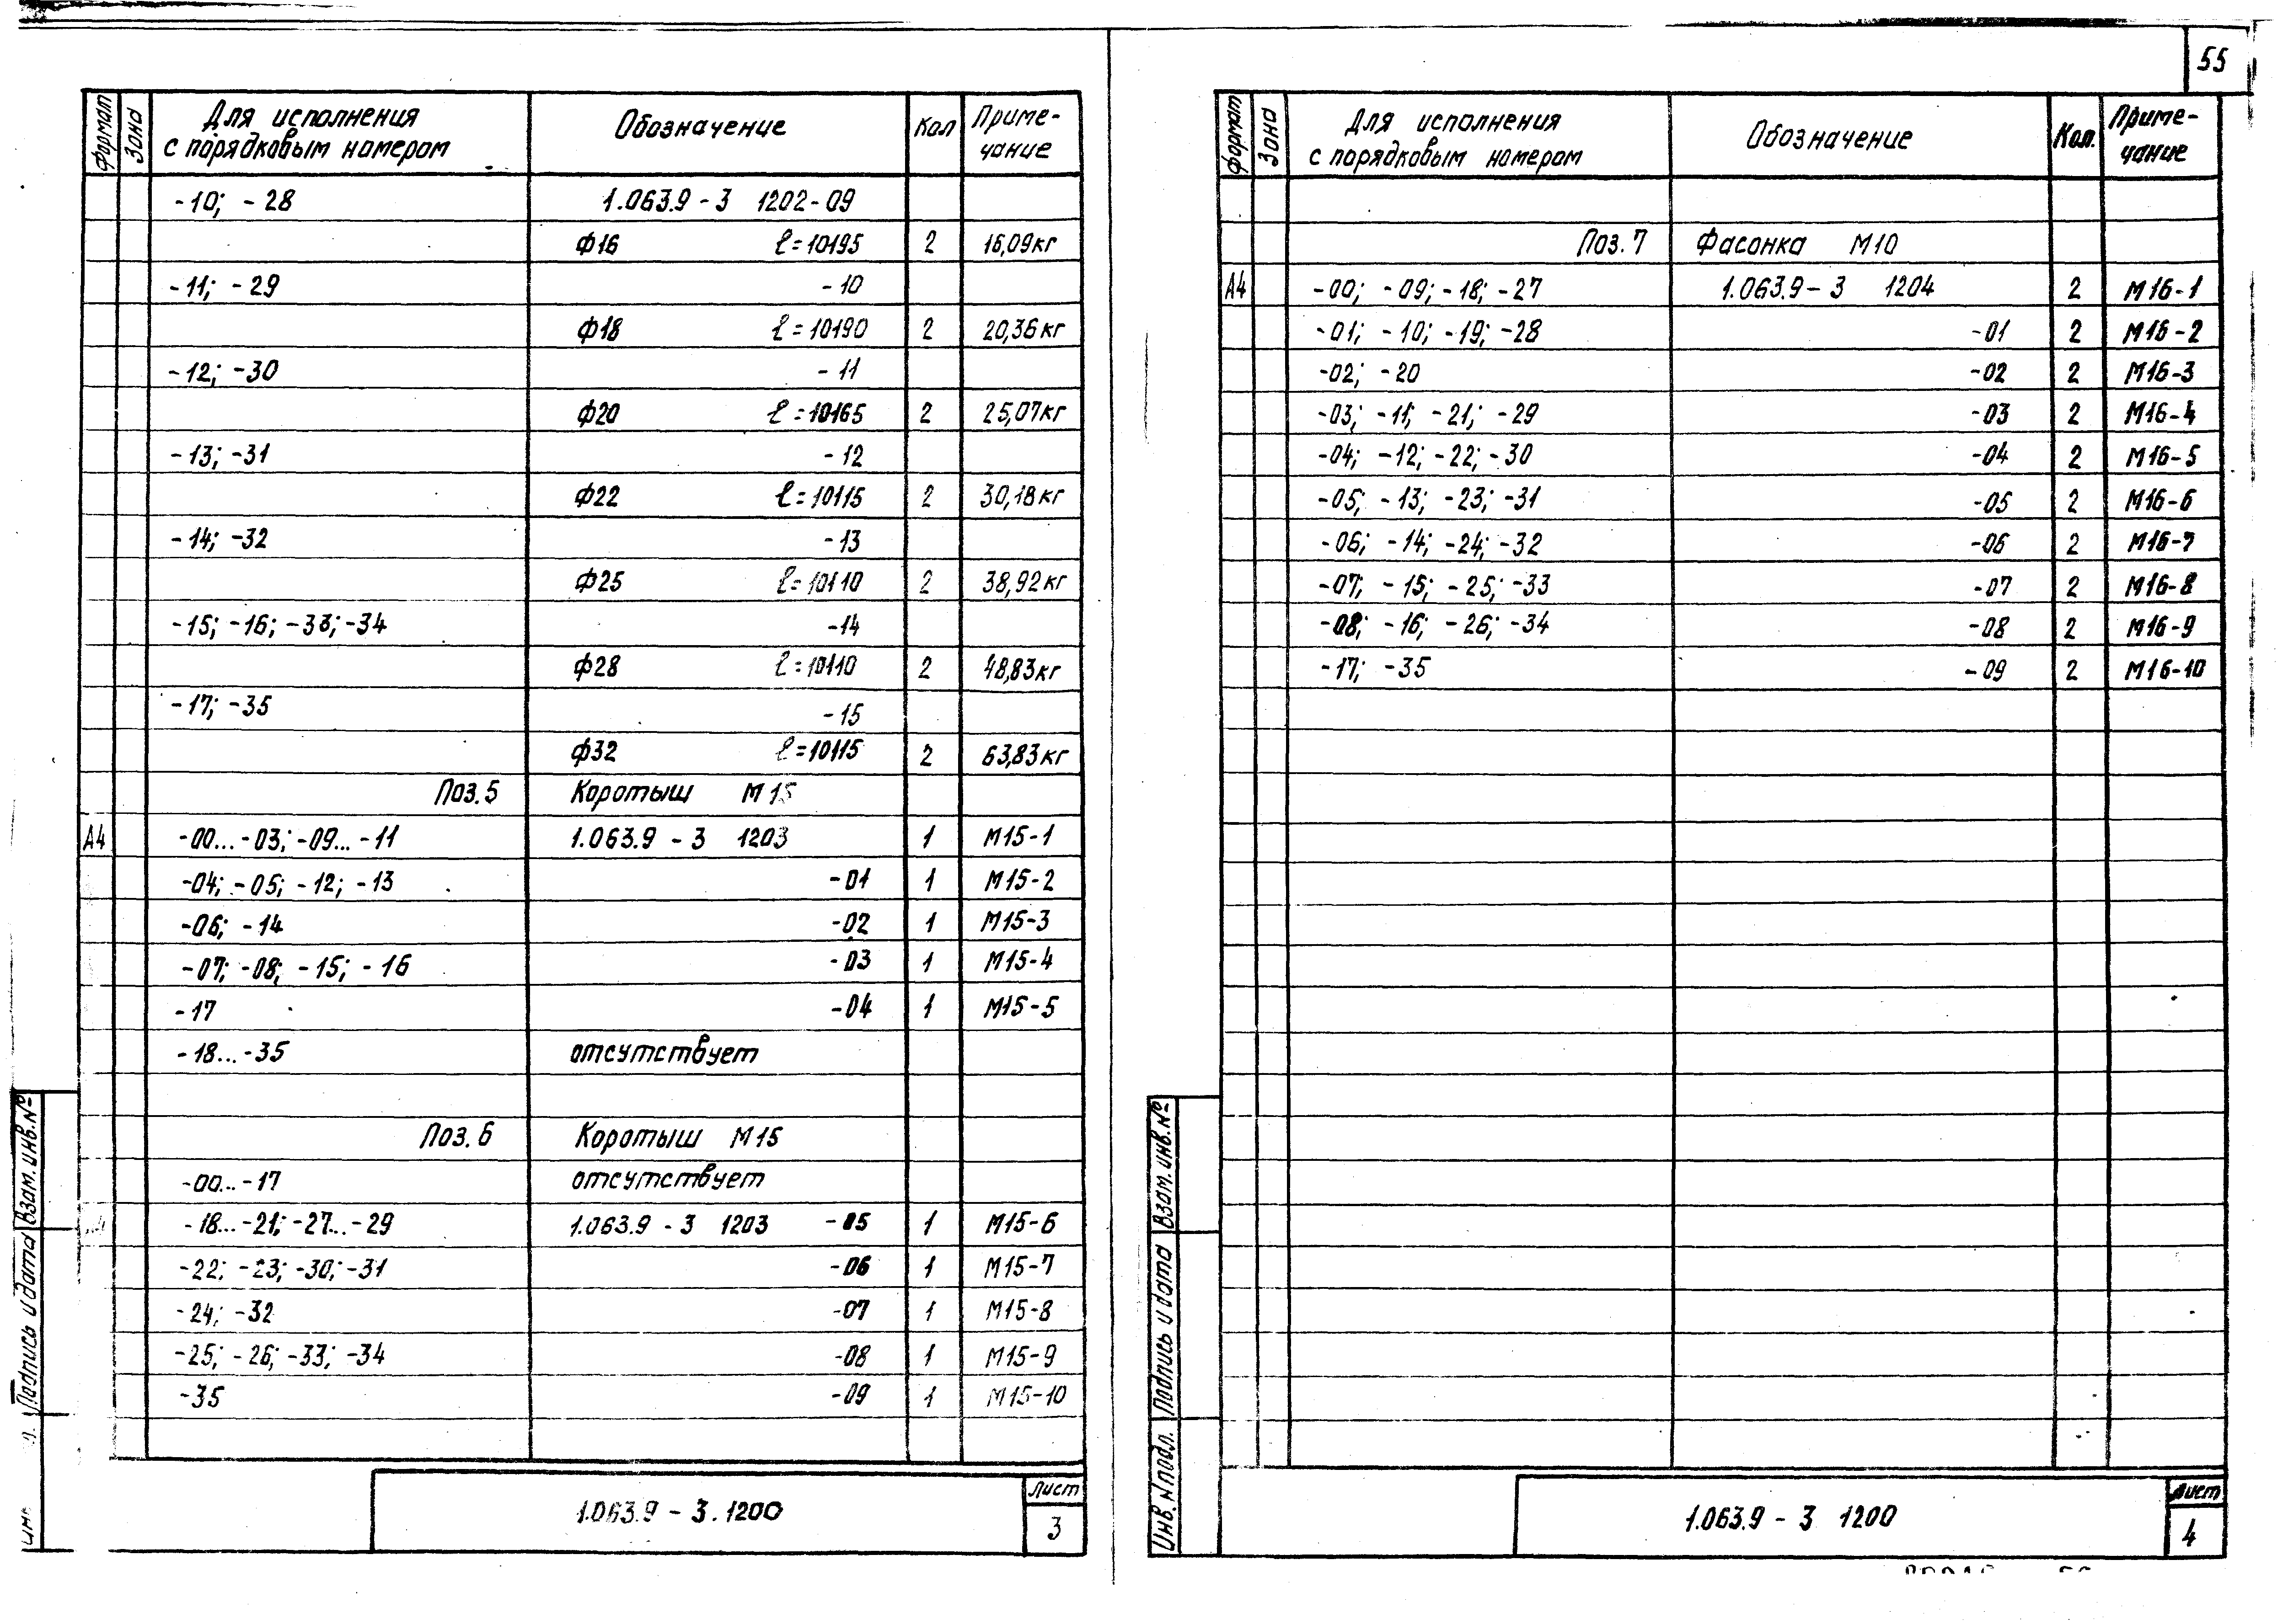 55
Формат Зона Для исполнения с порядковым номером Обозначение Кол Приме-чание
-10; -28 1.063.9-3 1202-09
ф16 ℓ=10195 2 16,09кг
-11; -29 -10
ф18 ℓ=10190 2 20,36кг
-12; -30 -11
ф20 ℓ=10165 2 25,07кг
-13; -31 -12
ф22 ℓ=10115 2 30,18кг
-14; -32 -13
ф25 ℓ=10110 2 38,92кг
-15; -16; -33; -34 -14
ф28 ℓ=10110 2 48,83кг
-17; -35 -15
ф32 ℓ=10115 2 63,83кг
Поз.5 Коротыш М15
А4 -00...-03; -09...-11 1.063.9-3 1203 1 М15-1
-04; -05; -12; -13 -01 1 М15-2
-06; -14 -02 1 М15-3
-07; -08; -15; -16 -03 1 М15-4
-17 -04 1 М15-5
-18...-35 отсутствует
Поз.6 Коротыш М15
-00...-17 отсутствует
-18...-21; -27...-29 1.063.9-3 1203 -05 1 М15-6
-22; -23; -30; -31 -06 1 М15-7
-24; -32 -07 1 М15-8
-25; -26; -33; -34 -08 1 М15-9
-35 -09 1 М15-10
Подпись и дата Взам.инв.№
1.063.9-3.1200
Лист
3
Формат Зона Для исполнения с порядковым номером Обозначение Кол. Приме-чание
Поз.7 Фасонка М10
А4 -00; -09; -18; -27 1.063.9-3 1204 2 М16-1
-01; -10; -19; -28 -01 2 М16-2
-02; -20 -02 2 М16-3
-03; -11; -21; -29 -03 2 М16-4
-04; -12; -22; -30 -04 2 М16-5
-05; -13; -23; -31 -05 2 М16-6
-06; -14; -24; -32 -06 2 М16-7
-07; -15; -25; -33 -07 2 М16-8
-08; -16; -26; -34 -08 2 М16-9
-17; -35 -09 2 М16-10
Инв.№подл. Подпись и дата Взам.инв.№
1.063.9-3 1200
Лист
4